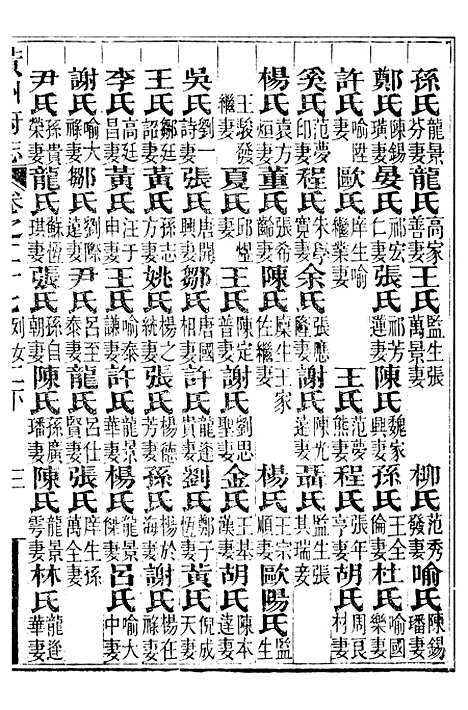 孫氏龍景分妻龍氏高家善妻王氏監生張萬景妻柳氏范秀發妻喻氏陳錫璠妻
鄭氏陳錫璜妻晏氏祁宏仁妻張氏祁芳蓮妻陳氏魏家興妻孫氏王全倫妻杜氏喻國樂妻
許氏喻陞妻歐氏庠生喻繼藥妻王氏范夢熊妻程氏張年亨妻胡氏周艮材妻
奚氏范夢印妻程氏朱學寬妻余氏張應隆妻謝氏陳光遠妻聶氏監生張其瑞妾
楊氏袁方烜妻董氏張希齡妻陳氏廩生王家佐繼妻楊氏王宗順妻歐陽氏監生
王駿發繼妻夏氏邱煋妻王氏陳定普妻謝氏劉思聖妻金氏王基漢妻胡氏陳本達妻
吳氏劉一詩妻張氏唐開興妻鄒氏唐國相妻許氏龍逢貴妻劉氏鄭子恆妻黃氏倪成天妻
王氏鄒廷韶妻黃氏孫志方妻姚氏楊之統妻張氏楊德芳妻孫氏楊於海妻謝氏楊在祿妻
李氏高廷昌妻黃氏汪于申妻王氏喻泰謙妻許氏龍景華妻楊氏龍景傑妻呂氏喻大中妻
謝氏喻大祿妻鄒氏劉際遠妻尹氏呂至泰妻龍氏呂仕賢妻張氏庠生孫萬全妻
尹氏孫貴榮妻龍氏蘇恆琪妻張氏孫自朝妻陳氏孫廣璠妻陳氏龍景雩妻林氏龍逢華妻
黃州府志 卷之二十七 列女二下 三